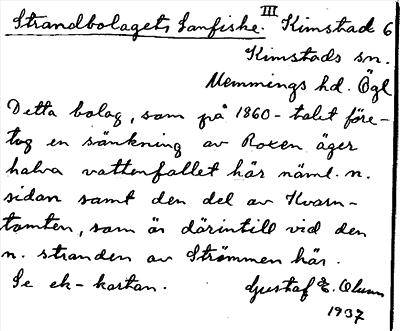 Strandbolagets Lanfiske. III Kimstad 6
Kimstads sn.
Memmings hd. Ögl
Detta bolag, som på 1860-talet före-
tog en sänkning av Roxen äger
halva vattenfallet här näml. n.
sidan samt den del av Kvarn-
tomten, som är därintill vid den
n. stranden av Strömmen här.
Se ek-kartan. Gustaf E. Olsson
1937